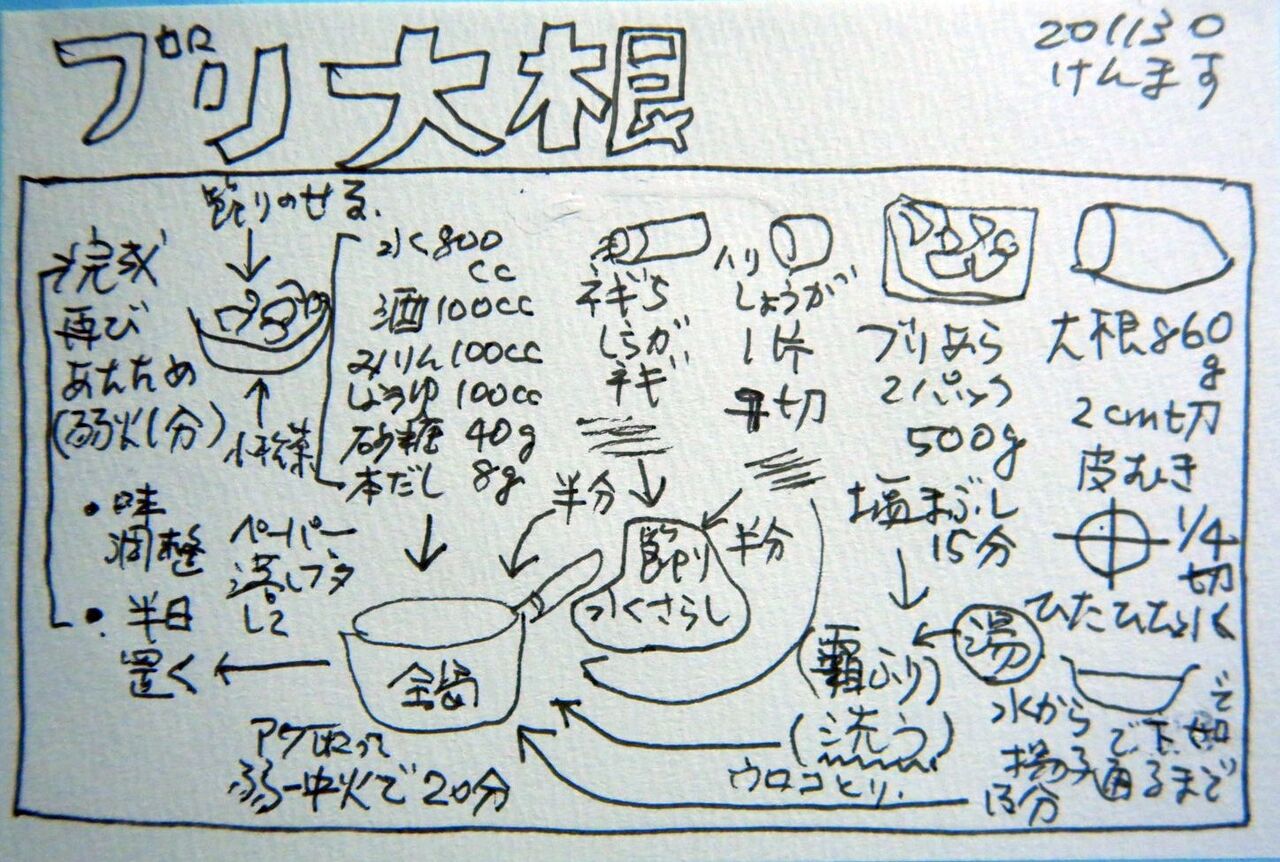 ブリ大根
201130
けんます
大根860
g
2cm切
皮むき
1/4
切
ひたひた水
で下茹
で
通るまで
水から
15分
ブリあら
2パック
500g
塩まぶし
15分
湯
(霜ふり)
(洗う)
ウロコとり.
ハリ
しょうが
1片
千切
半分
ネギ5
しらが
ネギ
半分
飾り
水さらし
水800
cc
酒100cc
みりん100cc
しょうゆ100cc
砂糖 40g
本だし 8g
全鍋
アクとって
弱〜中火で20分
ペーパー
落しブタ
して
・半日
置く
・味
調整
再び
あたため
(弱火1分)
完成
飾りのせる.
小松菜